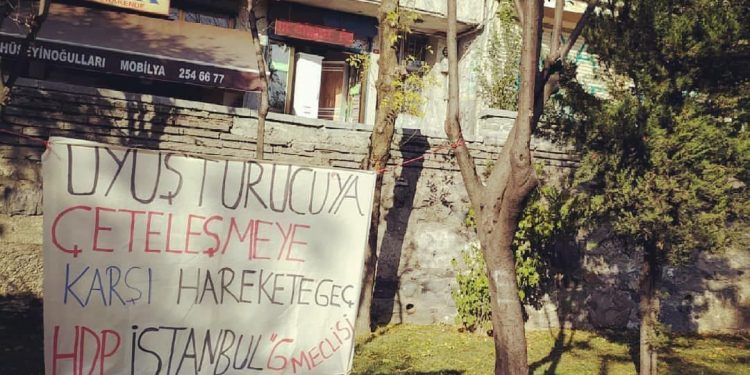 HÜSEYİNOĞULLARI MOBİLYA 254 66 77
UYUŞTURUCU'YA
ÇETELEŞMEYE
KARŞI HAREKETE GEÇ
HDP İSTANBUL "G MECLİSİ